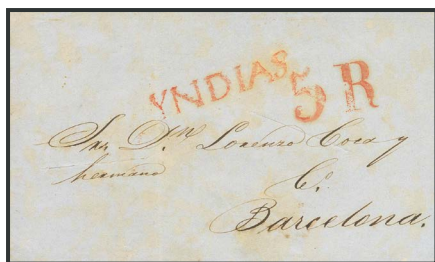 YNDIAS 5 R
Snr. Dn. Lorenzo Coca y
hermano
Co.
Barcelona.